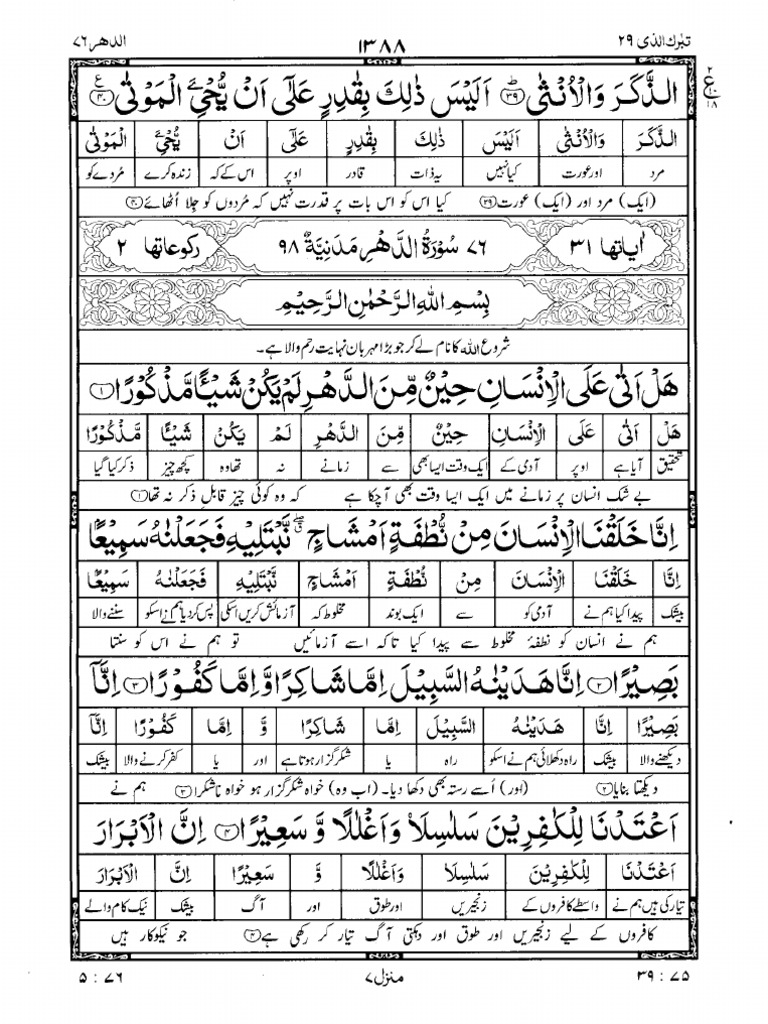 تبٰرك الذی ۲۹ ۱۳۸۸ الدهر ۷۶
ع ۲ ۱۰ ۱۸
الذَّكَرَ وَالْاُنْثٰى ؕ۳۹ اَلَيْسَ ذٰلِكَ بِقٰدِرٍ عَلٰٓى اَنْ يُّحْيِۦَ الْمَوْتٰى ۴۰ ع
الذَّكَرَ وَالْاُنْثٰى اَلَيْسَ ذٰلِكَ بِقٰدِرٍ عَلٰٓى اَنْ يُّحْيِۦَ الْمَوْتٰى
مرد اور عورت کیا نہیں یہ ذات قادر اوپر اس کے کہ زندہ کرے مُردے کو
(ایک) مرد اور (ایک) عورت ۳۹ کیا اس کو اس بات پر قدرت نہیں کہ مُردوں کو جِلا اُٹھائے ۴۰
اٰیاتها ۳۱ ۷۶ سُوْرَةُ الدَّهْرِ مَدَنِيَّةٌ ۹۸ ركوعاتها ۲
بِسْمِ اللهِ الرَّحْمٰنِ الرَّحِيْمِ
شروع اللہ کا نام لے کر جو بڑا مہربان نہایت رحم والا ہے۔
هَلْ اَتٰى عَلَى الْاِنْسَانِ حِيْنٌ مِّنَ الدَّهْرِ لَمْ يَكُنْ شَيْـًٔا مَّذْكُوْرًا ۱
هَلْ اَتٰى عَلَى الْاِنْسَانِ حِيْنٌ مِّنَ الدَّهْرِ لَمْ يَكُنْ شَيْـًٔا مَّذْكُوْرًا
تحقیق آیا ہے اوپر آدمی کے ایک وقت ایسا بھی سے زمانے نہ تھا وہ کچھ چیز ذکر کیا گیا
بے شک انسان پر زمانے میں ایک ایسا وقت بھی آچکا ہے کہ وہ کوئی چیز قابلِ ذکر نہ تھا ۱
اِنَّا خَلَقْنَا الْاِنْسَانَ مِنْ نُّطْفَةٍ اَمْشَاجٍ ۖ نَّبْتَلِيْهِ فَجَعَلْنٰهُ سَمِيْعًۢا
اِنَّا خَلَقْنَا الْاِنْسَانَ مِنْ نُّطْفَةٍ اَمْشَاجٍ نَّبْتَلِيْهِ فَجَعَلْنٰهُ سَمِيْعًۢا
بیشک پیدا کیا ہم نے آدمی کو سے ایک بوند مخلوط کہ آزمائش کریں اسکی پس کر دیا ہم نے اسکو سننے والا
ہم نے انسان کو نطفۂ مخلوط سے پیدا کیا تاکہ اسے آزمائیں تو ہم نے اس کو سنتا
بَصِيْرًا ۲ اِنَّا هَدَيْنٰهُ السَّبِيْلَ اِمَّا شَاكِرًا وَّ اِمَّا كَفُوْرًا ۳ اِنَّآ
بَصِيْرًا اِنَّا هَدَيْنٰهُ السَّبِيْلَ اِمَّا شَاكِرًا وَّ اِمَّا كَفُوْرًا اِنَّآ
دیکھنے والا بیشک راہ دکھلائی ہم نے اسکو راہ یا شکر گزار ہوتا ہے اور یا کفر کرنے والا بیشک
دیکھتا بنایا ۲ (اور) اُسے رستہ بھی دکھا دیا۔ (اب وہ) خواہ شکرگزار ہو خواہ ناشکرا ۳ ہم نے
اَعْتَدْنَا لِلْكٰفِرِيْنَ سَلٰسِلَا۟ وَاَغْلٰلًا وَّ سَعِيْرًا ۴ اِنَّ الْاَبْرَارَ
اَعْتَدْنَا لِلْكٰفِرِيْنَ سَلٰسِلَا۟ وَاَغْلٰلًا وَّ سَعِيْرًا اِنَّ الْاَبْرَارَ
تیار کی ہیں ہم نے واسطے کافروں کے زنجیریں اور طوق اور آگ بیشک نیک کام والے
کافروں کے لیے زنجیریں اور طوق اور دہکتی آگ تیار کر رکھی ہے ۴ جو نیکوکار ہیں
۷۵ : ۳۹ منزل ۷ ۷۶ : ۵